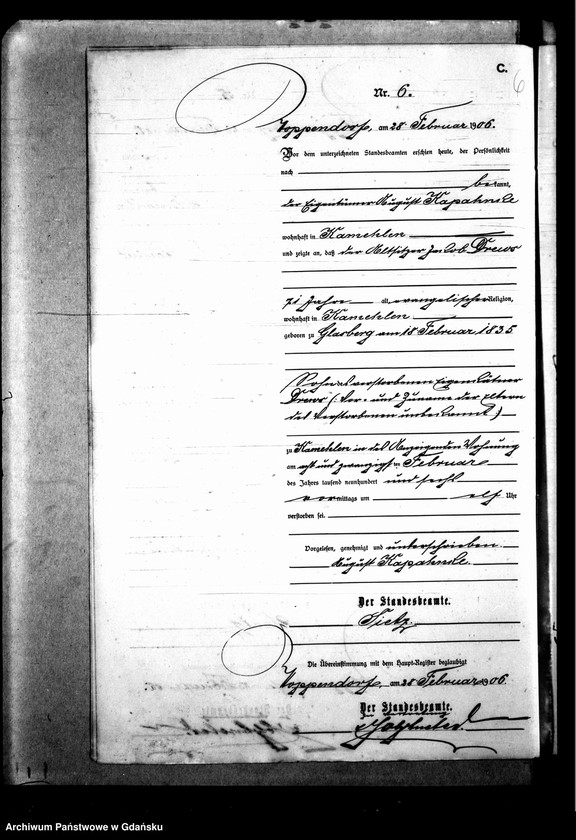 C.
6
Nr. 6.
Hoppendorf, am 28 Februar 1906.
Vor dem unterzeichneten Standesbeamten erschien heute, der Persönlichkeit
nach
bekannt,
der Eigentümer August
wohnhaft in Kamehlen
und zeigte an, daß der Altsitzer Jakob Drews
71 Jahre alt, evangelischer Religion,
wohnhaft in Kamehlen
geboren zu am 18 Februar 1835
Sohn des verstorbenen Eigentümer
Drews (: Vor- und Zuname der Eltern
des Verstorbenen unbekannt :)
zu Kamehlen in des Anzeigenden Wohnung
am acht und zwanzigsten Februar
des Jahres tausend neunhundert und sechs
vormittags um elf Uhr
verstorben sei.
Vorgelesen, genehmigt und unterschrieben.
August
Der Standesbeamte.
Tietz.
Die Übereinstimmung mit dem Haupt-Register beglaubigt
Hoppendorf, am 28 Februar 1906.
Der Standesbeamte.
Archiwum Państwowe w Gdańsku